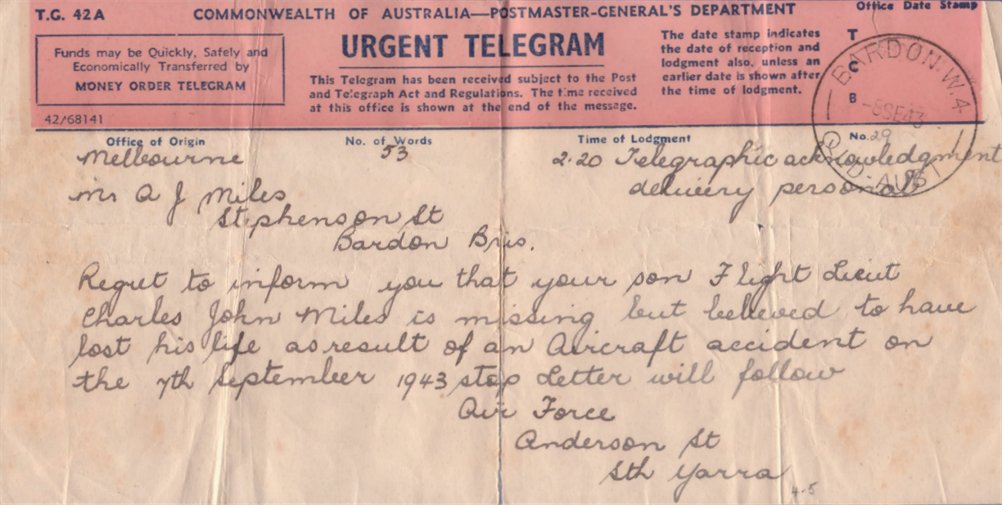 T.G. 42A
COMMONWEALTH OF AUSTRALIA—POSTMASTER-GENERAL'S DEPARTMENT
Office Date Stamp
Funds may be Quickly, Safely and
Economically Transferred by
MONEY ORDER TELEGRAM
42/68141
URGENT TELEGRAM
This Telegram has been received subject to the Post
and Telegraph Act and Regulations. The time received
at this office is shown at the end of the message.
The date stamp indicates
the date of reception and
lodgment also, unless an
earlier date is shown after
the time of lodgment.
T
C
B
BARDON·W.4
-8SE43
QLD-AUST
Office of Origin
No. of Words
Time of Lodgment
No. 29
Melbourne
53
2.20 Telegraphic acknowledgment
delivery personal
Mr A J Miles
Stphenson St
Bardon Bris.
Regret to inform you that your son Flight Lieut
Charles John Miles is missing but believed to have
lost his life as result of an Aircraft accident on
the 7th September 1943 stop Letter will follow
Air Force
Anderson St
Sth Yarra
4.5